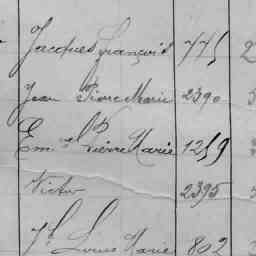 Jacques François 775 2
Jean Pierre Marie 2390
Em. el Pierre Marie 1259
Victor 2395
Louis Marie 802